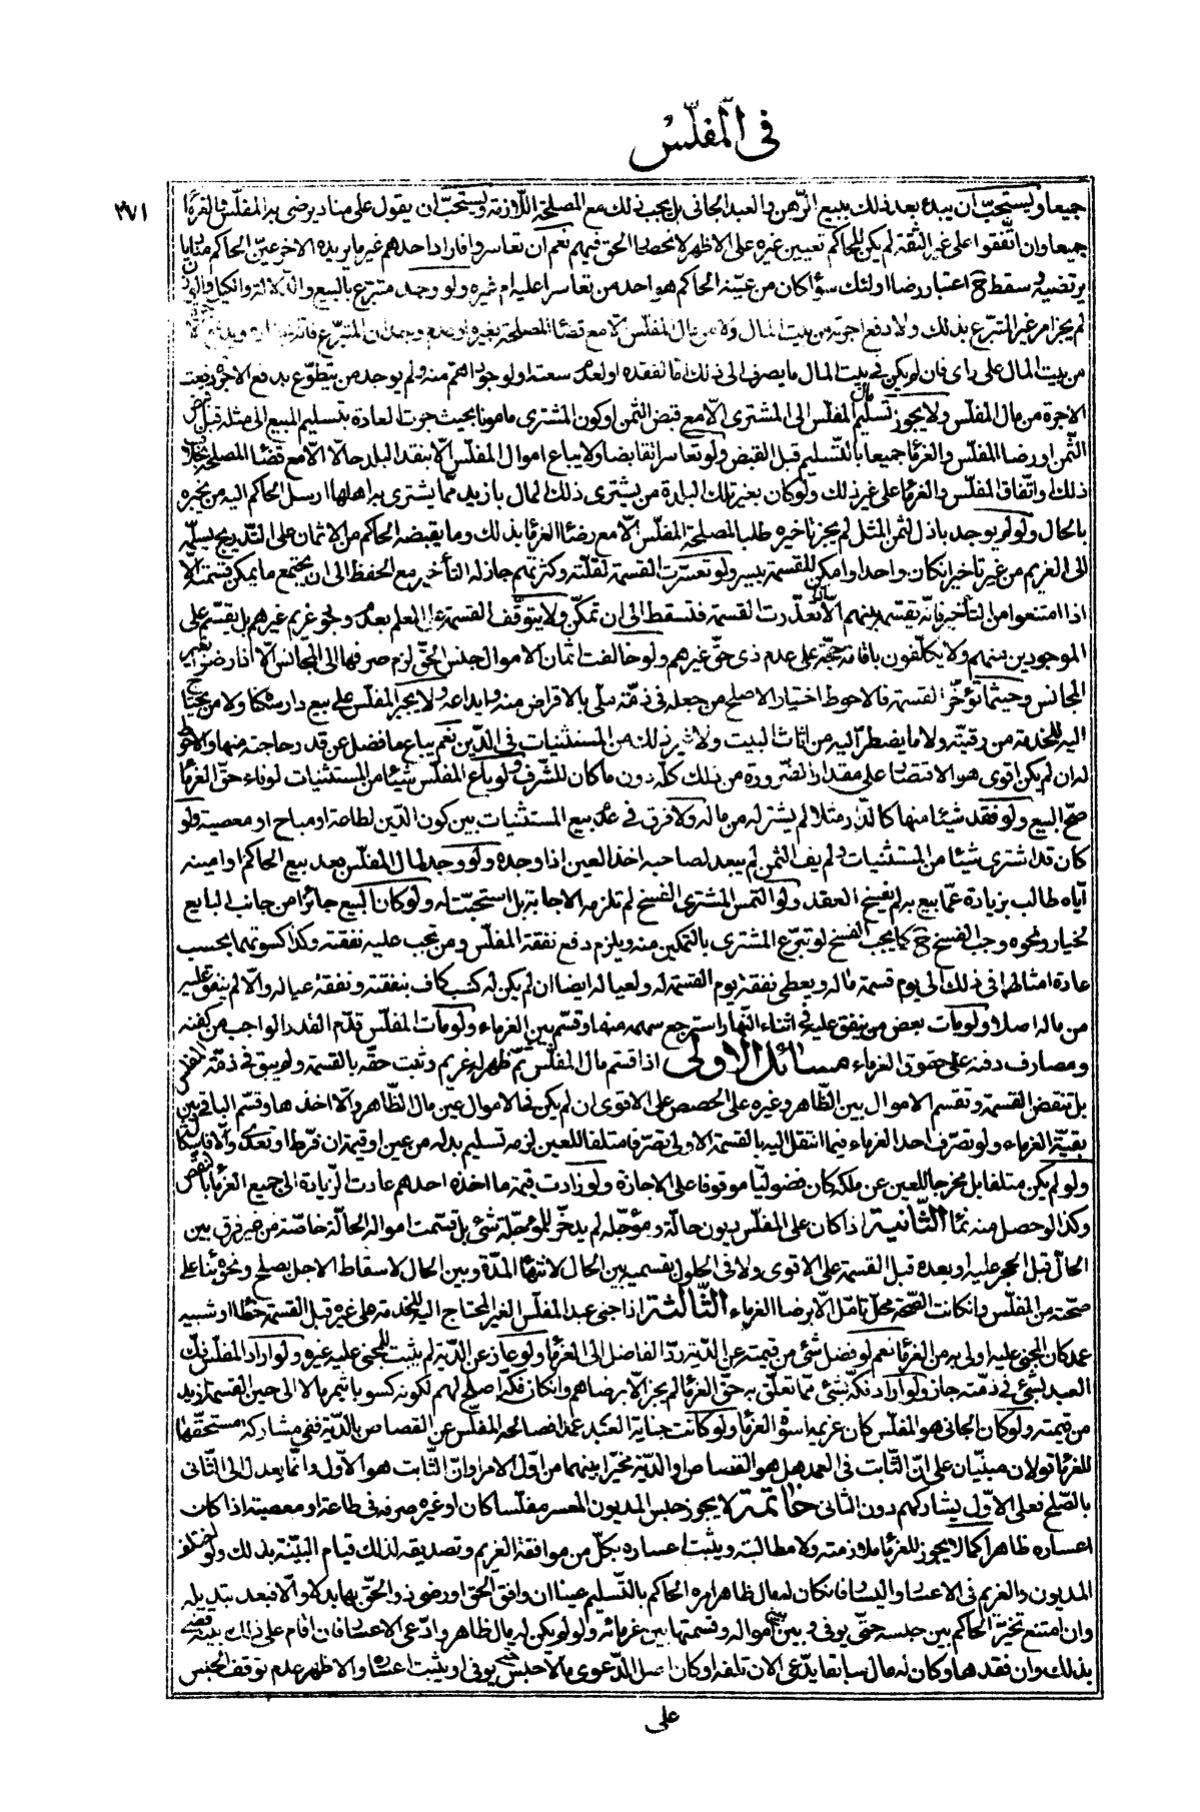 في المفلّس
٣٧١
جميعا ويستحبّ ان يبدء بعد ذلك ببيع الرّهن والعبد الجانى بل يجب ذلك مع المصلحة اللّازمة ويستحبّ ان يقول على مناد يرضى به المفلّس والغرماء
جميعا وان اتّفقوا على غير الثقة لم يكن للحاكم تعيين غيره على الاظهر لانحصار الحق فيهم نعم ان تعاسروا فاراد احدهم غير ما يريده الاخر عيّن الحاكم
يرتضيه وسقط ح اعتبار رضا اولئك سواء كان من عيّنه الحاكم هو احد من تعاسرا عليه ام غيره ولو وجد متبرّع بالبيع والدّلالة والكيل والوزن
لم يجز امر غير المتبرّع بذلك ولا دفع اجرته من بيت المال ولا من مال المفلّس الا مع قضاء المصلحة بغيره
من بيت المال على راى فان لم يكن في بيت المال ما يصرف الى ذلك امّا لفقده او لعدم سعته او لوجود اهمّ منه ولم يوجد من يتطوّع بدفع الاجرة دفعت
الاجرة من مال المفلّس ولا يجوز تسليم مال المفلّس الى المشترى الّا مع قبض الثمن او كون المشترى مامونا بحيث جرت العادة بتسليم المبيع الى مثله قبل قبض
الثّمن او رضا المفلّس والغرماء جميعا بالتّسليم قبل القبض ولو تعاسرا تقابضا ولا يباع اموال المفلّس الّا بنقد البلد حالّا الّا مع قضاء المصلحة بخلاف
ذلك او اتّفاق المفلّس والغرماء على غير ذلك ولو كان بغير تلك البلدة من يشترى ذلك المال بازيد ممّا يشترى به اهلها ارسل الحاكم اليه من يخبره
بالحال ولو لم يوجد باذل لثمن المثل لم يجز تاخيره طلبا لمصلحة المفلّس الّا مع رضاء الغرماء بذلك وما يقبضه الحاكم من الاثمان على التّدريج يسلّمه
الى الغريم من غير تاخير ان كان واحدا وامكن للقسمة بيسر ولو تعسّرت القسمة لقلّته وكثرتهم جاز له التأخير مع الحفظ الى ان يجتمع ما يمكن قسمته الّا
اذا امتنعوا من التأخير فانّه يقسّم بينهم الّا اذا تعذّرت القسمة فتسقط الى ان تمكّن ولا يتوقّف القسمة على العلم بعدم وجود غريم غيرهم بل يقسّم على
الموجودين منهم ولا يكلّفون باقامة حجّة على عدم ذى حقّ غيرهم ولو خالفت اثمان الاموال جنس الحقّ لزم صرفها الى المجانس الّا اذا رضوا بغير
المجانس وحيثما تؤخّر القسمة فالاحوط اختيار الاصلح من جعله فى ذمّة ملّى بالاقراض منه وايداعه ولا يجبر المفلّس على بيع دار سكناه ولا من يحتاج
اليه للخدمة من رقيقه ولا ما يضطرّ اليه من اثاث البيت ولا غير ذلك من المستثنيات فى الدّين نعم يباع ما فضل عن قدر حاجته منها والاحوط
له ان لم يكن اقوى هو الاقتصار على مقدار الضّرورة من ذلك كلّه دون ما كان للشّرف ولو باع المفلّس شيئا من المستثنيات لوفاء حقّ الغرماء
صحّ البيع ولو فقد شيئا منها كالدّار مثلا لم يشتر له من ماله ولا فرق فى عدم بيع المستثنيات بين كون الدّين لطاعة او مباح او معصية ولو
كان قد اشترى شيئا من المستثنيات ولم يف الثمن لم يبعد لصاحبه اخذ العين اذا وجده ولو وجد لمال المفلّس بعد بيع الحاكم او امينه
ايّاه طالب بزيادة عمّا بيع به لم ينفسخ العقد ولو التمس المشترى الفسخ لم تلزمه الاجابة بل استحبّت له ولو كان البيع جائزا من جانب البايع
لخيار ونحوه وجب الفسخ ح كما يجب الفسخ لو تبرّع المشترى بالتّمكين منه ويلزم دفع نفقة المفلّس ومن تجب عليه نفقته وكذا كسوتهما بحسب
عادة امثالهما فى ذلك الى يوم قسمة ماله ويعطى نفقة يوم القسمة له ولعياله ايضا ان لم يكن له كسب كاف بنفقته ونفقة عياله والّا لم ينفق عليه
من ماله اصلا ولو مات بعض من ينفق عليه فى اثناء النّهار استرجع سهمه منها وقسّم بين الغرماء ولو مات المفلّس قدّم القدر الواجب من كفنه
ومصارف دفنه على حقوق الغرماء مسائل الاولى اذا قسم مال المفلّس ثمّ ظهر له غريم وثبت حقّه بالقسمة ولم يبق فى ذمّة المفلّس
بل تنقض القسمة وتقسم الاموال بين الظّاهر وغيره على الحصص على الاقوى ان لم يكن فى الاموال عين مال الظّاهر والّا اخذها وقسّم الباقى بين
بقيّة الغرماء ولو تصرّف احد الغرماء فيما انتقل اليه بالقسمة الاولى تصرّفا متلفا للعين لزمه تسليم بدله من عين او قيمة ان فرّط او تعدّى والّا فلا
ولو لم يكن متلفا بل مخرجا للعين عن ملكه كان فضوليّا موقوفا على الاجازة ولو زادت قيمة ما اخذه احدهم عادت الزّيادة الى جميع الغرماء بالنقض
وكذا لو حصل منه نماء الثّانية اذا كان على المفلّس ديون حالّة ومؤجّلة لم يدخّر للمؤجّلة شئ بل تقسمت امواله الحالّة خاصّة من غير فرق بين
الحالّ قبل الحجر عليه او بعده قبل القسمة على الاقوى ولا فى الحلول بقسميه بين الحال لانتهاء المدّة وبين الحال لاسقاط الاجل بصلح ونحوه بناء على
صحّته من المفلّس وان كانت الصّحّة محلّ تامّل الّا برضا الغرماء الثّالثة اذا جنى عبد المفلّس الغير المحتاج اليه للخدمة على غيره قبل القسمة خطاء او شبيه
عمد كان المجنى عليه اولى به من الغرماء نعم لو فضل شئ من قيمته عن الدّية ردّ الفاضل الى الغرماء ولو عاز عن الدّية لم يثبت للمجنى عليه غيره ولو اراد المفلّس فكّ
العبد بشئ فى ذمّته جاز ولو اراد فكّه بشئ ممّا تعلّق به حقّ الغرماء لم يجز الّا برضاهم وان كان فكّه اصلح لهم لكونه كسوبا يثمر مالا الى حين القسمة ازيد
من قيمته ولو كان الجانى هو المفلّس كان غريمه اسوة الغرماء ولو كانت جناية العبد عمدا فصالحه المفلّس عن القصاص بالدّية ففى مشاركة مستحقّها
للغرماء قولان مبنيّان على انّ الثّابت فى العمد هل هو القصاص او الدّية مخيّرا بينهما من اوّل الامر او انّ الثّابت هو الاوّل وانّما يعدل الى الثّانى
بالصّلح فعلى الاوّل يشاركهم دون الثانى خاتمة لا يجوز حبس المديون المعسر مفلّسا كان او غيره صرفه فى طاعة او معصية اذا كان
اعساره ظاهرا كما لا يجوز للغرماء ملازمته ولا مطالبته ويثبت اعساره بكلّ من موافقة الغريم وتصديقه لذلك وقيام البيّنة بذلك ولو اختلف
المديون والغريم فى الاعسار واليسار فان كان له مال ظاهر امره الحاكم بالتّسليم عينا ان وافق الحق او رضى ذو الحقّ بها بدلا والّا فبعد تبديله
وان امتنع تخيّر الحاكم بين حبسه حتّى يوفى وبين بيع امواله وقسمتها بين غرمائه ولو لم يكن له مال ظاهر وادّعى الاعسار فان اقام على ذلك بيّنة قضى
بذلك وان فقدها وكان له مال سابقا يدّعى الان تلفه او كان اصل الدّعوى مالا حبس حتى يوفى او يثبت اعساره والاظهر عدم توقف الحبس
على